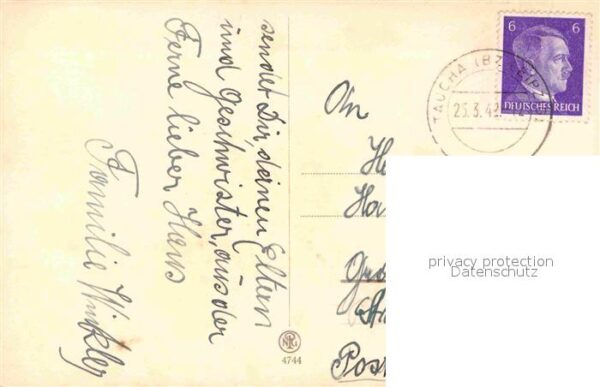 sendet Dir, deinen Eltern
und Geschwister, aus der
Ferne lieber Hans
Familie Winkler
6 6
DEUTSCHES REICH
TAUCHA (BZ
23.3.4
An
He
Ha
Gro
Post
privacy protection
Datenschutz
4744